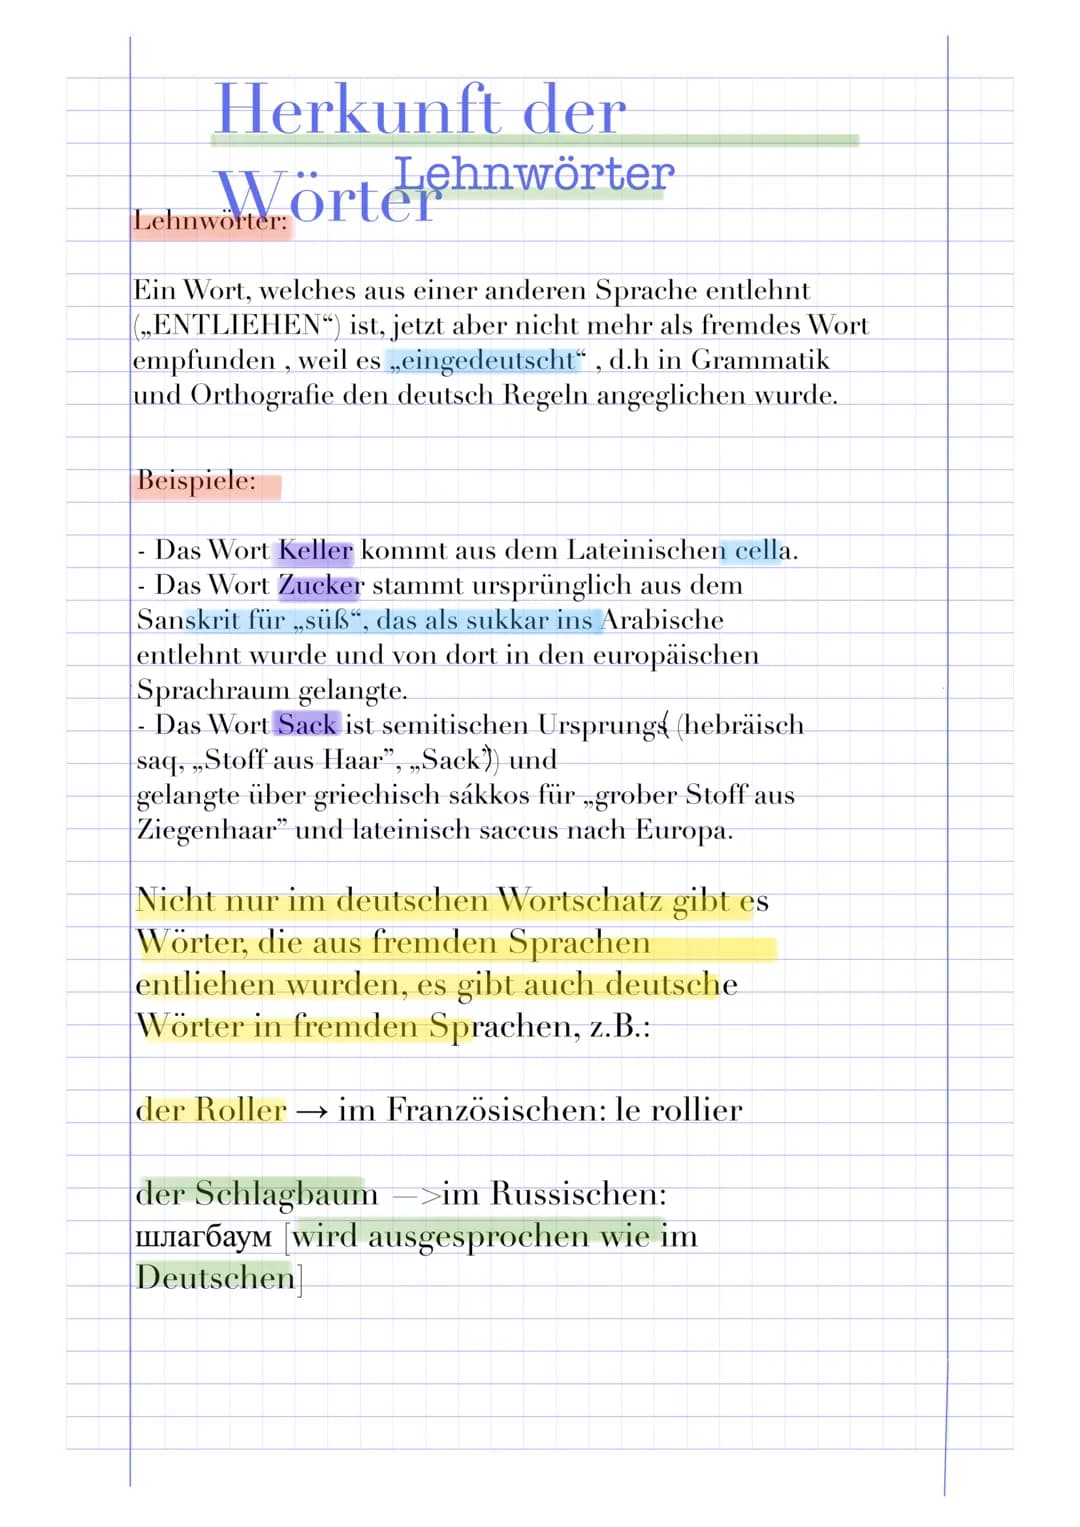 Herkunft der
Wörter
Lehnwörter
Lehnwörter:
Ein Wort, welches aus einer anderen Sprache entlehnt
(„ENTLIEHEN“) ist, jetzt aber nicht mehr als fremdes Wort
empfunden , weil es „eingedeutscht“ , d.h in Grammatik
und Orthografie den deutsch Regeln angeglichen wurde.
Beispiele:
- Das Wort Keller kommt aus dem Lateinischen cella.
- Das Wort Zucker stammt ursprünglich aus dem
Sanskrit für „süß“, das als sukkar ins Arabische
entlehnt wurde und von dort in den europäischen
Sprachraum gelangte.
- Das Wort Sack ist semitischen Ursprungs (hebräisch
saq, „Stoff aus Haar”, „Sack”) und
gelangte über griechisch sákkos für „grober Stoff aus
Ziegenhaar” und lateinisch saccus nach Europa.
Nicht nur im deutschen Wortschatz gibt es
Wörter, die aus fremden Sprachen
entliehen wurden, es gibt auch deutsche
Wörter in fremden Sprachen, z.B.:
der Roller → im Französischen: le rollier
der Schlagbaum —>im Russischen:
шлагбаум [wird ausgesprochen wie im
Deutschen]